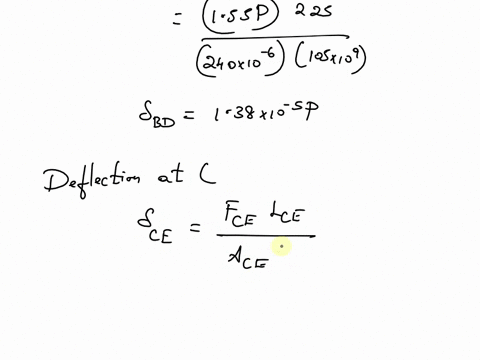 = (1.55P) 225
(240×10⁻⁶) (105×10⁹)
δ_BD = 1.38×10⁻⁵P
Deflection at C
δ_CE = F_CE L_CE
A_CE